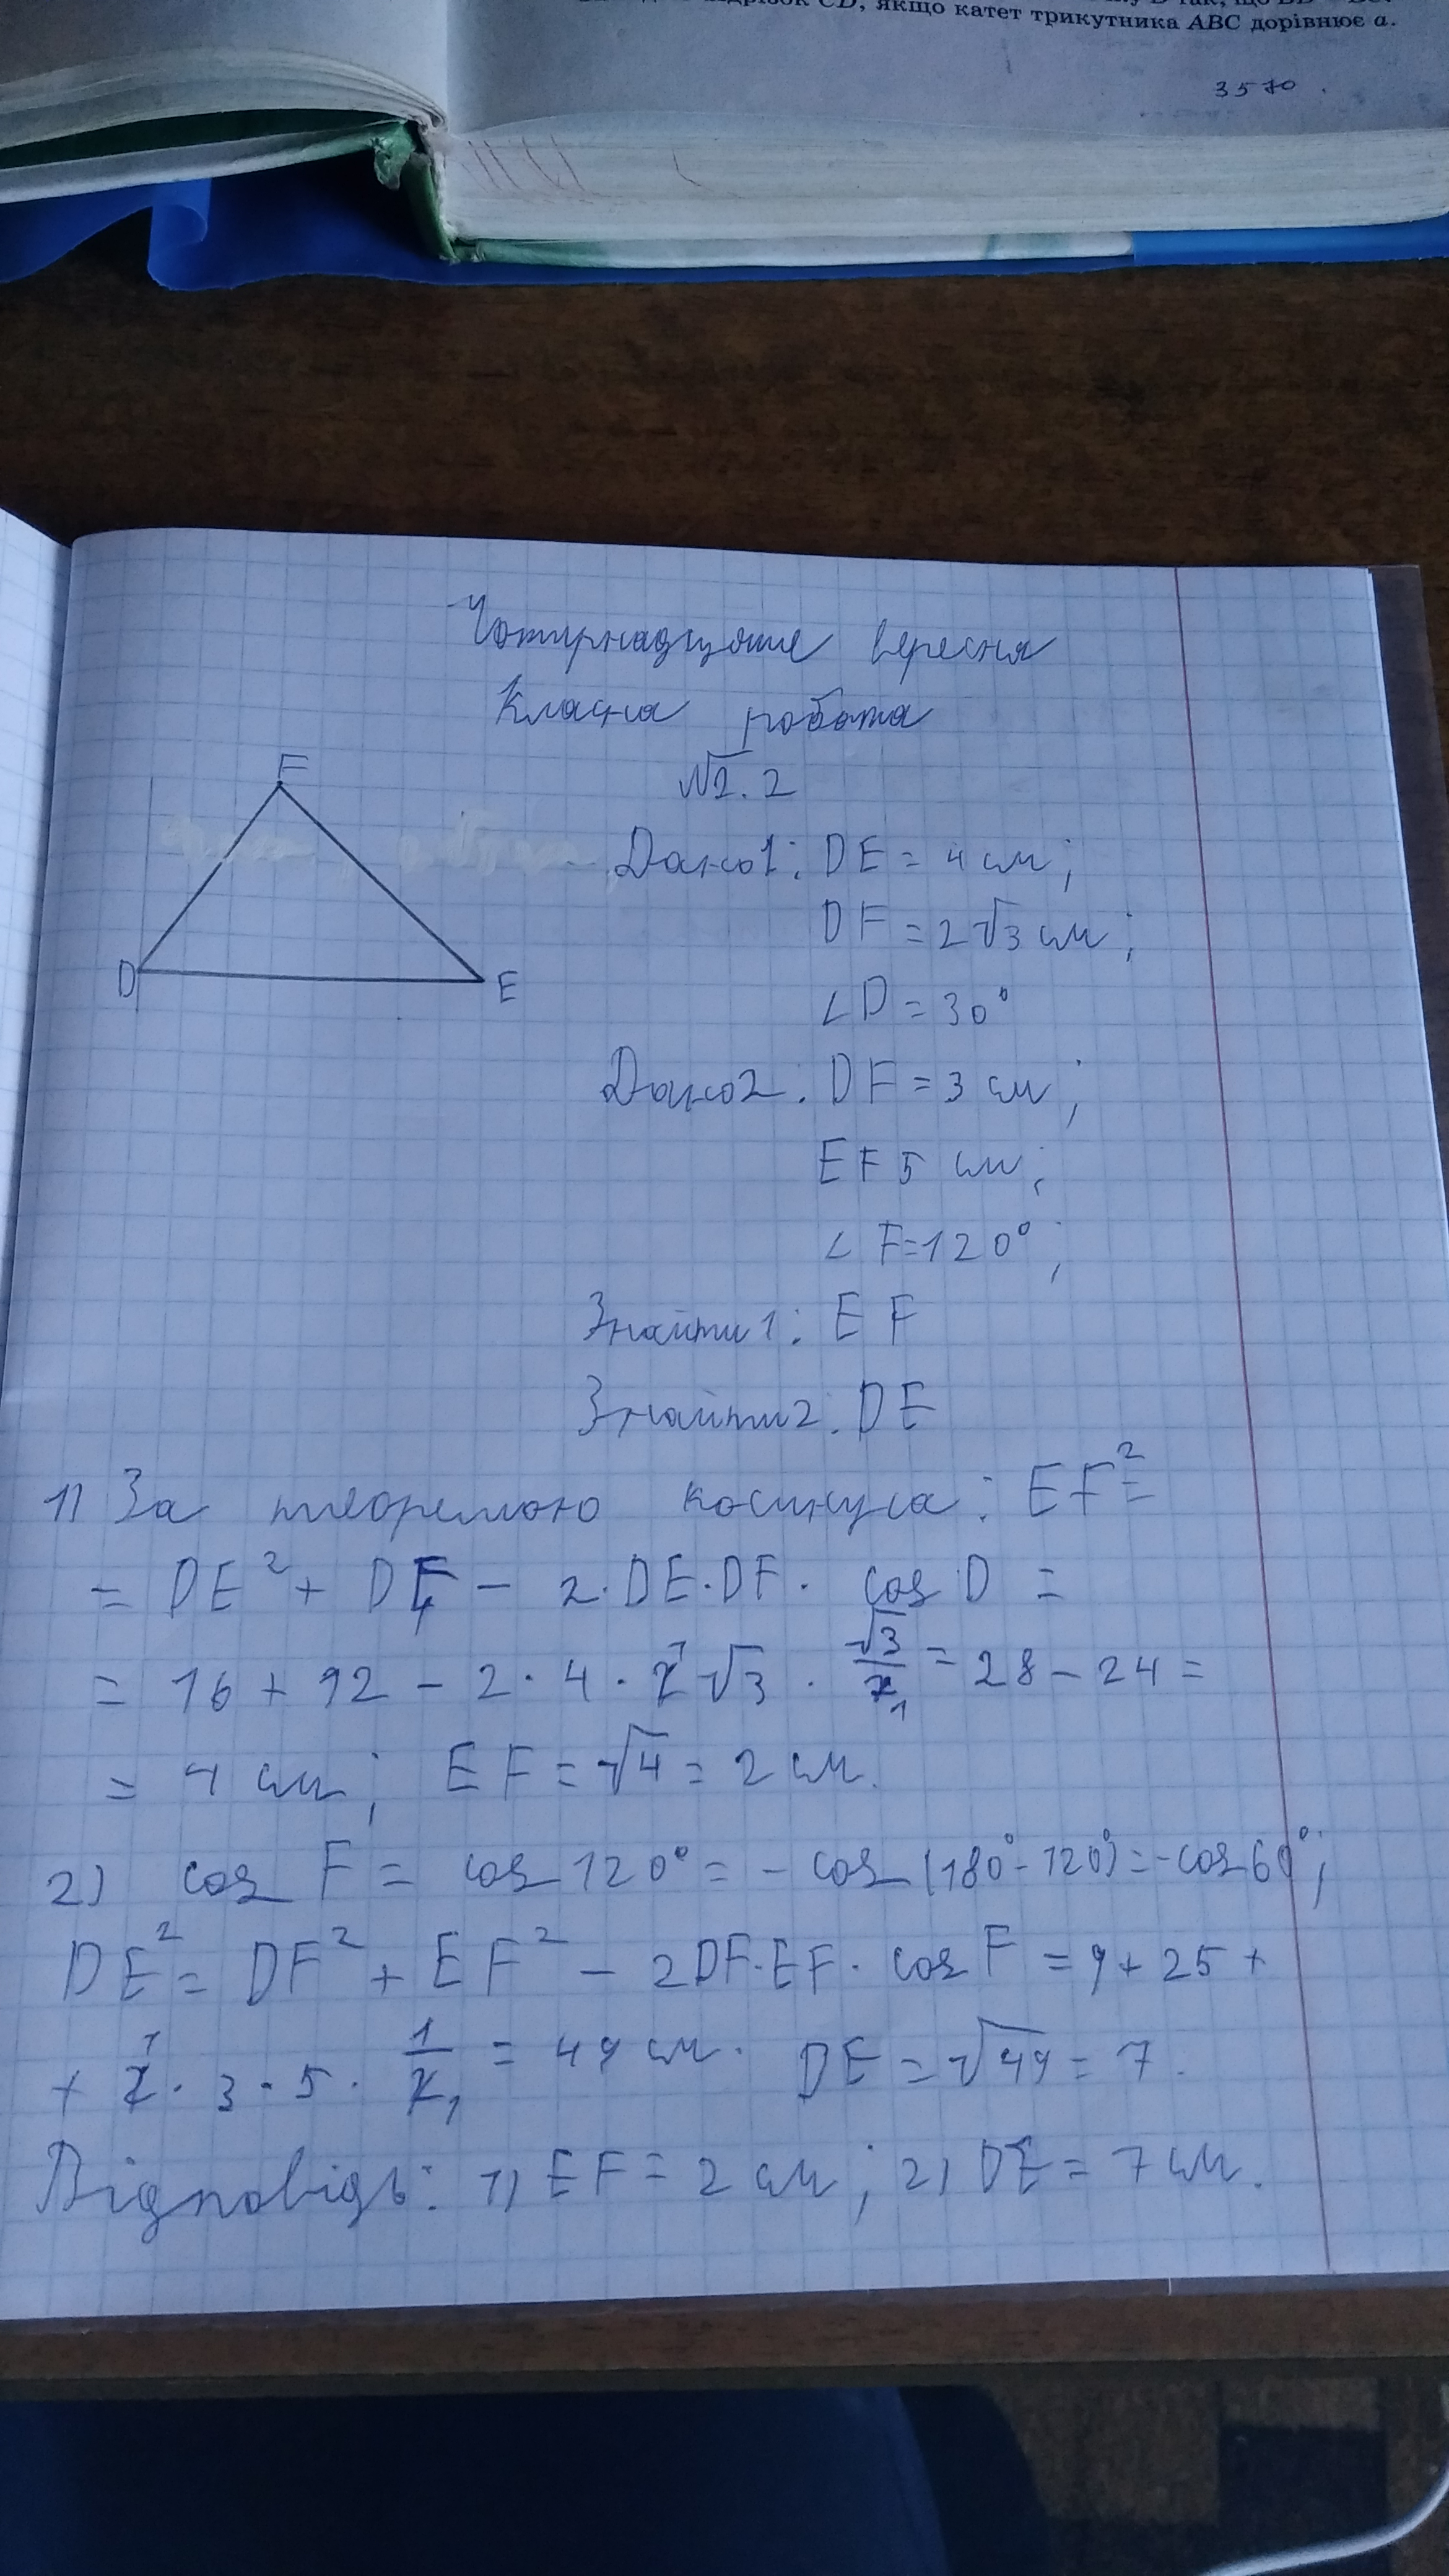 CD, якщо катет трикутника ABC дорівнює a.
3570.
Чотирнадцяте вересня
Класна робота
№2.2
F
D
E
Дано1: DE = 4 см;
DF = 2√3 см;
∠D = 30°
Дано2: DF = 3 см;
EF 5 см;
∠F=120°;
Знайти1: EF
Знайти2: DE
1) За теоремою косинуса: EF²=
= DE² + DF - 2·DE·DF· cos D =
= 16 + 12 - 2·4·2¹√3 · √3/2₁ = 28 - 24 =
= 4 см; EF = √4 = 2 см.
2) cos F = cos 120° = - cos (180°-120°) = -cos 60°;
DE² = DF² + EF² - 2DF·EF· cos F = 9 + 25 +
+ 2¹ · 3 · 5 · 1/2₁ = 49 см. DE = √49 = 7.
Відповідь: 1) EF = 2 см; 2) DE = 7 см.